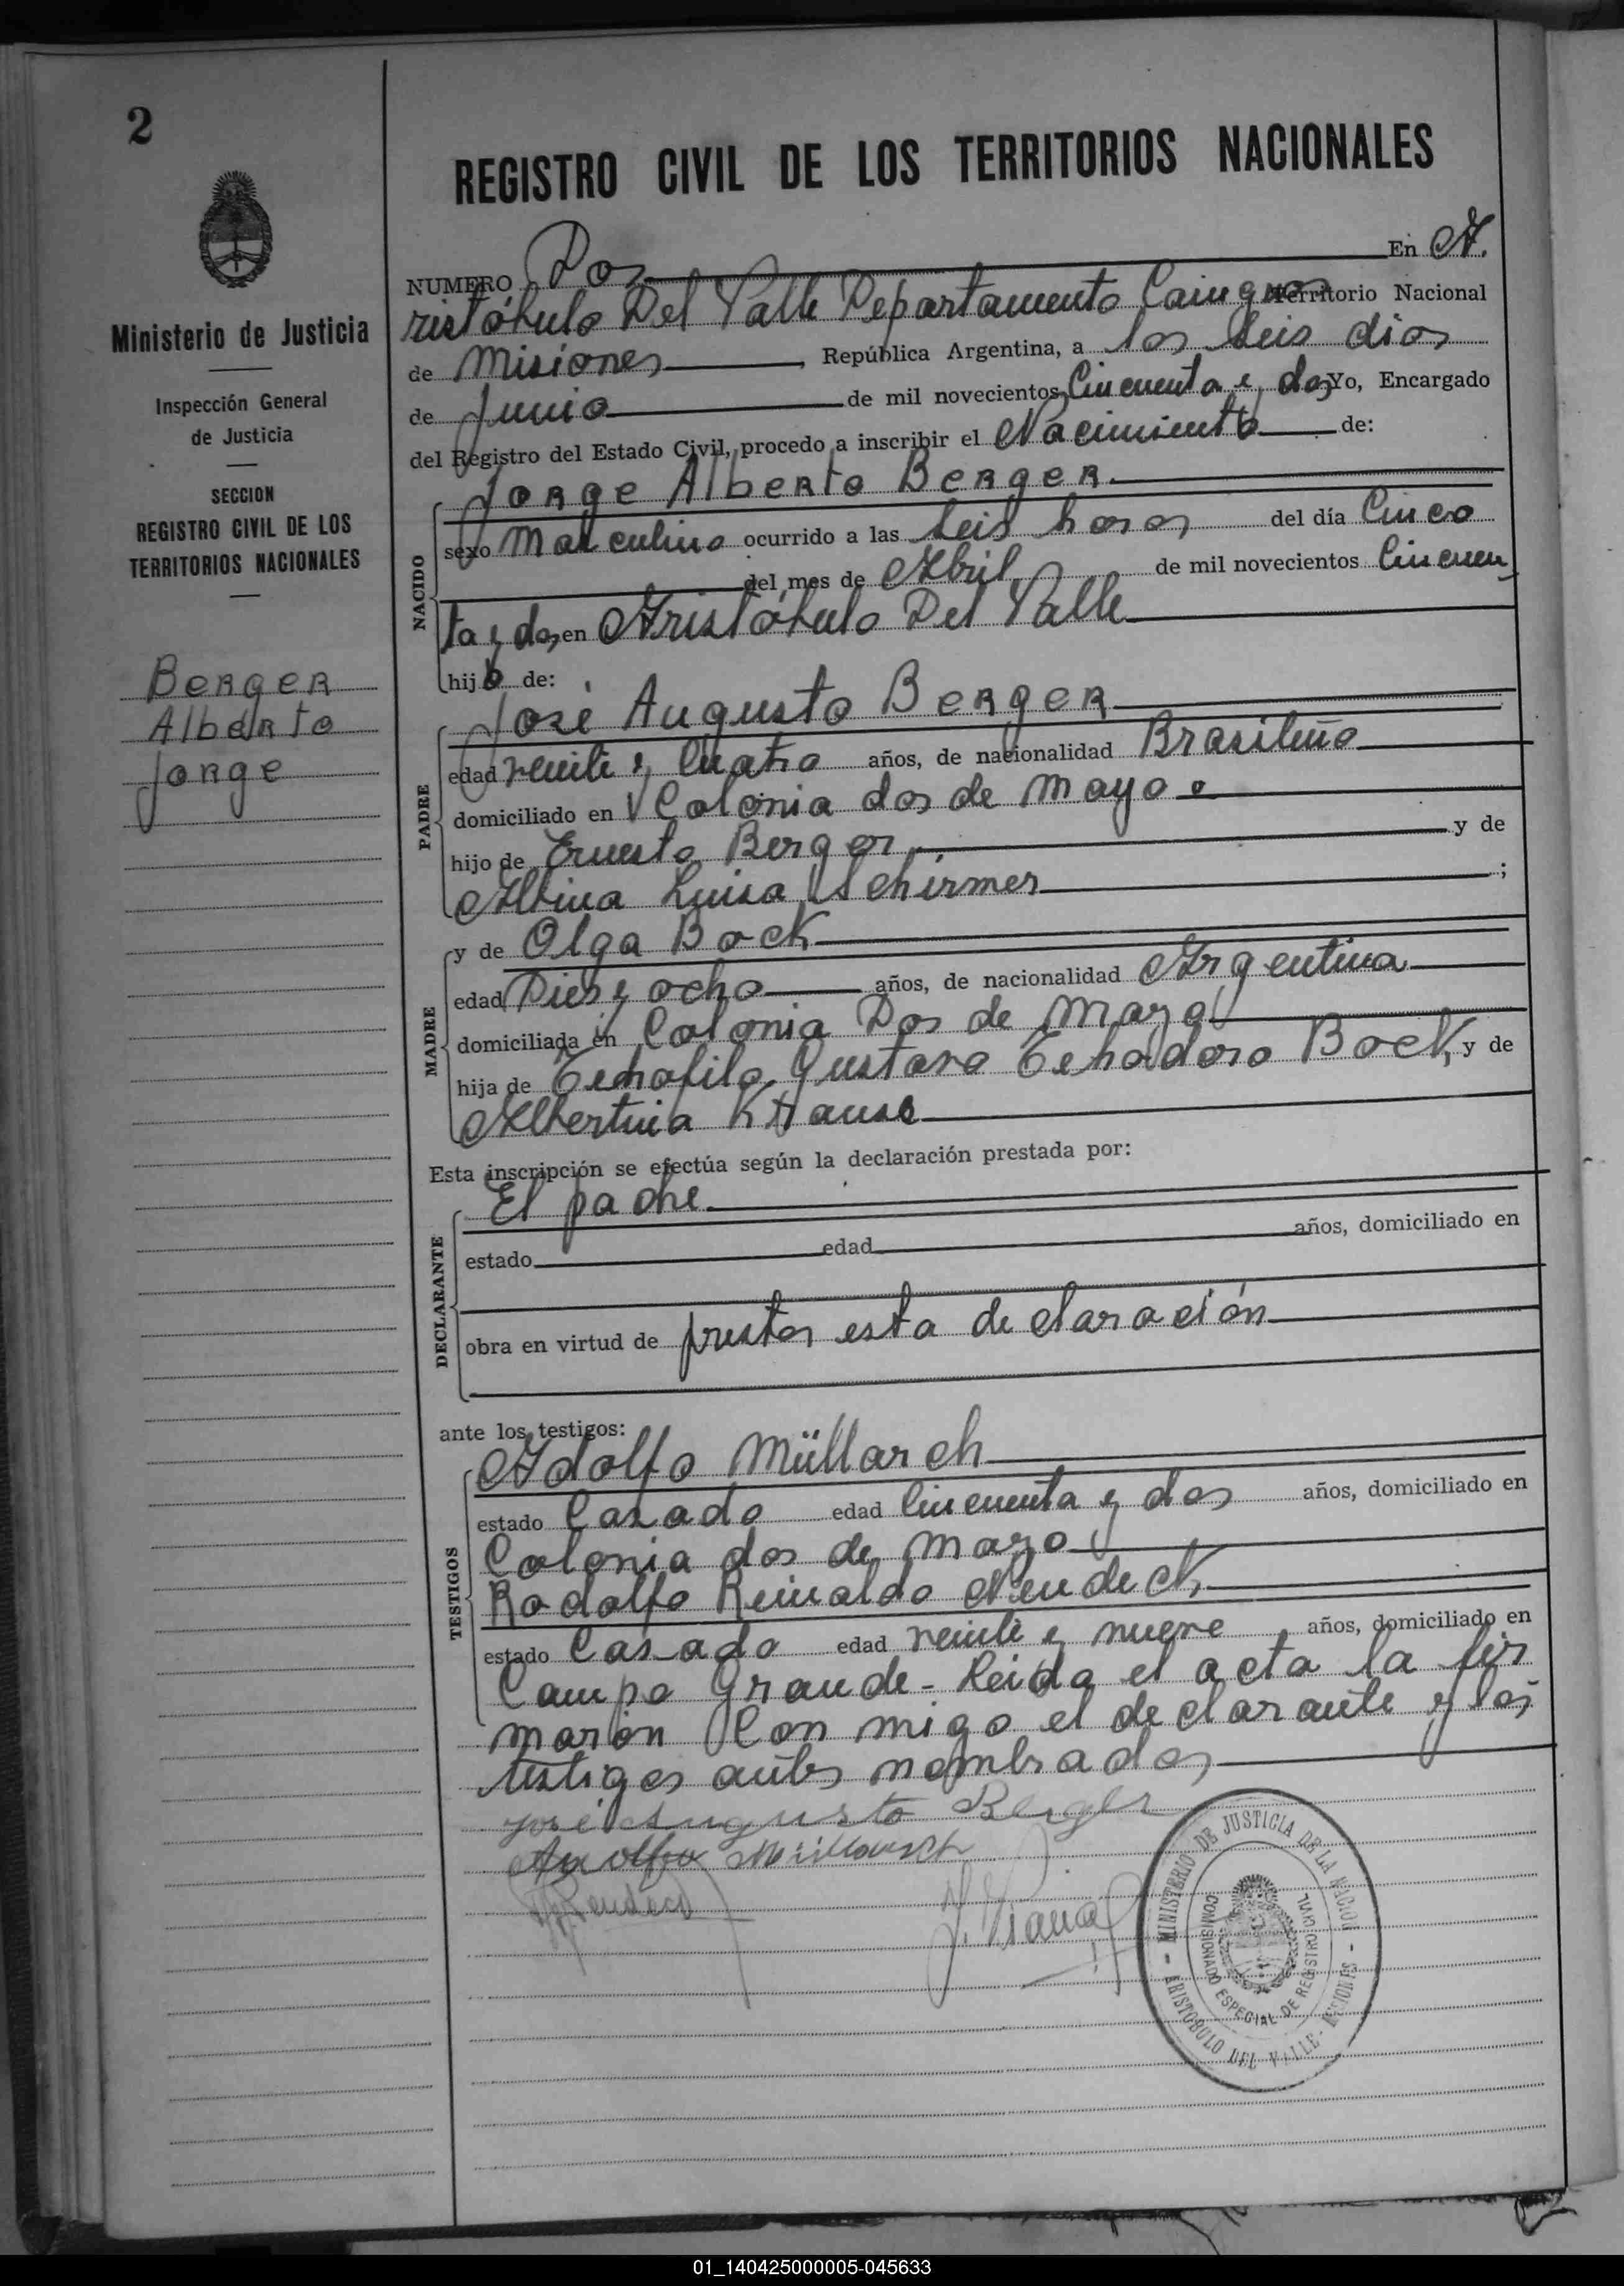 2
REGISTRO CIVIL DE LOS TERRITORIOS NACIONALES
Ministerio de Justicia
Inspección General
de Justicia
SECCION
REGISTRO CIVIL DE LOS
TERRITORIOS NACIONALES
Berger
Alberto
Jorge
NUMERO Dos En A.
ristóbulo Del Valle Departamento Cainguas Territorio Nacional
de Misiones, República Argentina, a los seis dias
de Junio de mil novecientos Cincuenta y dos Yo, Encargado
del Registro del Estado Civil, procedo a inscribir el Nacimiento de:
NACIDO
Jorge Alberto Berger
sexo Masculino ocurrido a las seis horas del día Cinco
del mes de Abril de mil novecientos Cincuen
ta y dos en Aristóbulo Del Valle
hijo de:
PADRE
José Augusto Berger
edad veinte y Cuatro años, de nacionalidad Brasileño
domiciliado en Colonia dos de Mayo
hijo de Ernesto Berger y de
Albina Luisa Schirmer ;
MADRE
y de Olga Bock
edad Dies y ocho años, de nacionalidad Argentina
domiciliada en Colonia Dos de Mayo
hija de Gustavo Bock y de
Albertina Krause
Esta inscripción se efectúa según la declaración prestada por:
DECLARANTE
El padre
estado edad años, domiciliado en
obra en virtud de prestar esta declaración
ante los testigos:
TESTIGOS
Adolfo Müllarch
estado Casado edad Cincuenta y dos años, domiciliado en
Colonia dos de Mayo
Rodolfo Reinaldo Neudeck
estado Casado edad veinte y nueve años, domiciliado en
Campo Grande - Leida el acta la fir
maron Con migo el declarante y los
testigos antes nombrados
José Augusto Berger
Adolfo Müllarch
MINISTERIO DE JUSTICIA DE LA NACION
COMISIONADO ESPECIAL DE REGISTRO CIVIL
ARISTOBULO DEL VALLE - MISIONES
01_140425000005-045633